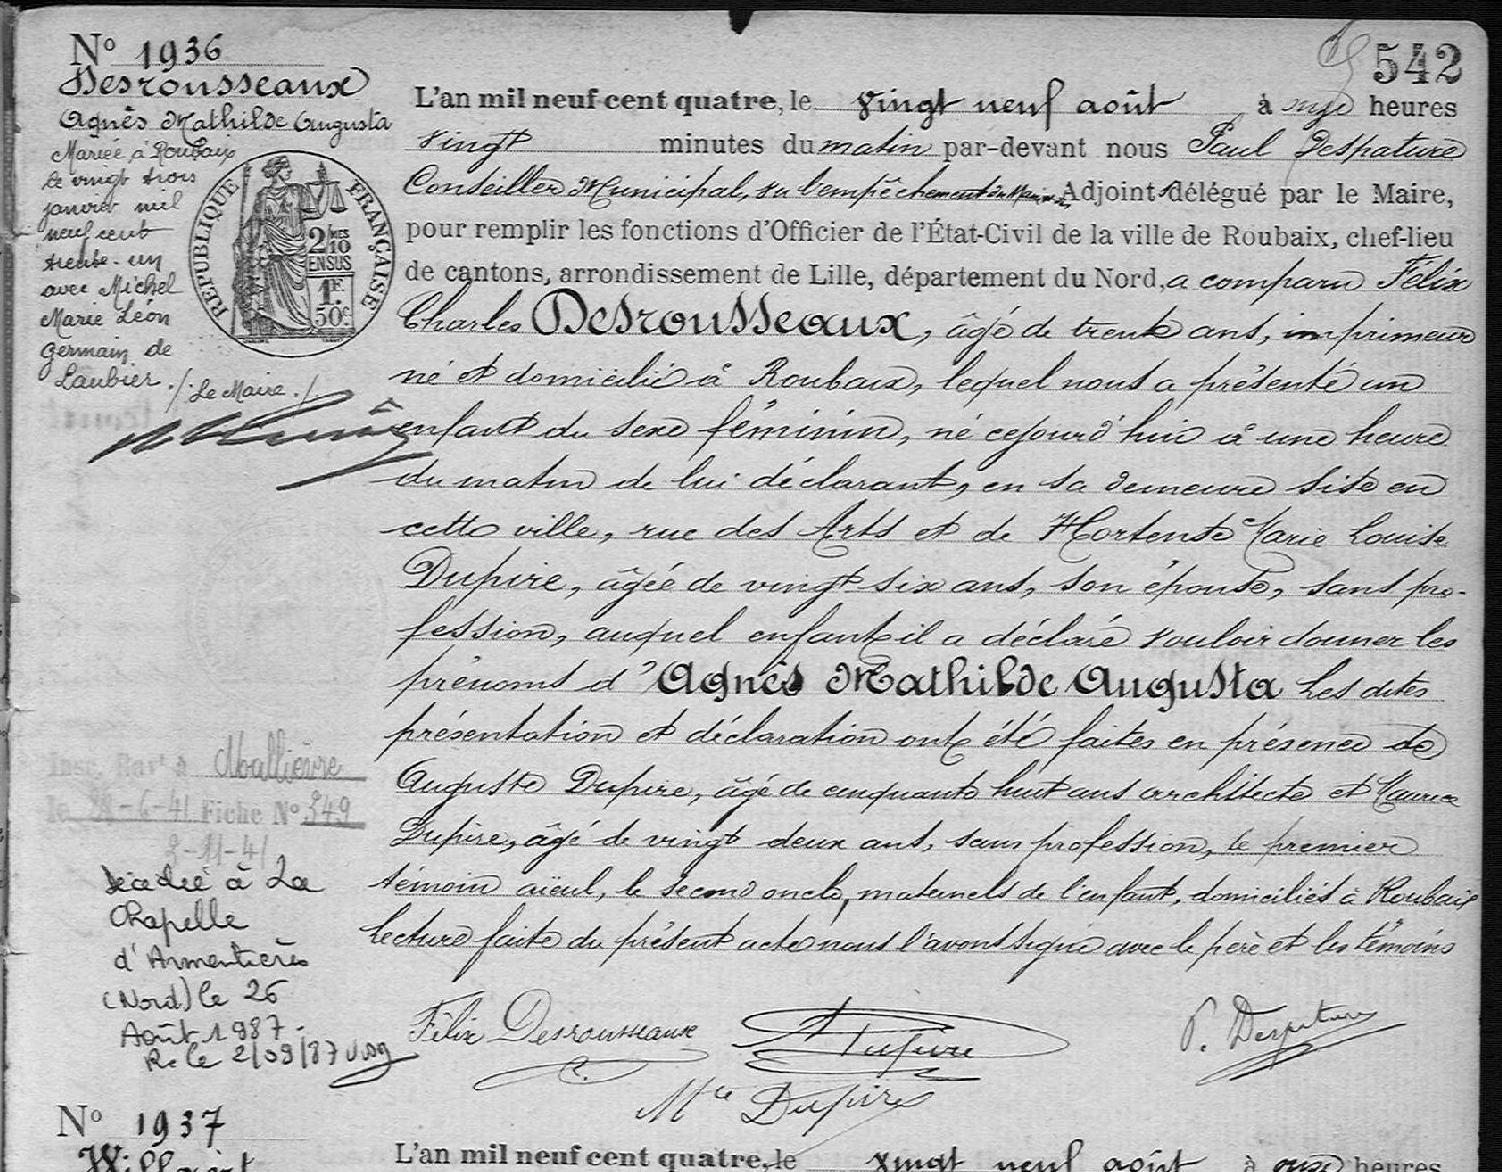 N° 1936
Desrousseaux
Agnès Mathilde Augusta
Mariée à Roubaix
le vingt trois
janvier mil
neuf cent
trente-un
avec Michel
Marie Léon
Germain de
Laubier ./.
Le Maire ./
RÉPUBLIQUE FRANÇAISE
2 MES
10
EN SUS
1F.
50c
542
L'an mil neuf cent quatre, le vingt neuf août à onze heures
vingt minutes du matin par-devant nous Paul Despature
Conseiller Municipal, vu l'empêchement du Maire, Adjoint délégué par le Maire,
pour remplir les fonctions d'Officier de l'État-Civil de la ville de Roubaix, chef-lieu
de cantons, arrondissement de Lille, département du Nord, a comparu Félix
Charles Desrousseaux, âgé de trente ans, imprimeur
né et domicilié à Roubaix, lequel nous a présenté un
enfant du sexe féminin, né cejourd'hui à une heure
du matin de lui déclarant, en sa demeure sise en
cette ville, rue des Arts et de Hortense Marie Louise
Dupire, âgée de vingt six ans, son épouse, sans pro-
fession, auquel enfant il a déclaré vouloir donner les
prénoms d'Agnès Mathilde Augusta Les dites
présentation et déclaration ont été faites en présence de
Auguste Dupire, âgé de cinquante huit ans architecte et Maurice
Dupire, âgé de vingt deux ans, sans profession, le premier
témoin aïeul, le second oncle, maternels de l'enfant, domiciliés à Roubaix
Lecture faite du présent acte nous l'avons signé avec le père et les témoins
Insc. Rav^t à Mallièvre
le -6-41 Fiche N° 349
8-11-41
Décédée à La
Chapelle
d'Armentières
(Nord) le 26
Août 1987.
R. le 2/09/87
Félix Desrousseaux
A Dupire
P. Despature
M^ce Dupire
N° 1937
L'an mil neuf cent quatre, le vingt neuf août à onze heures